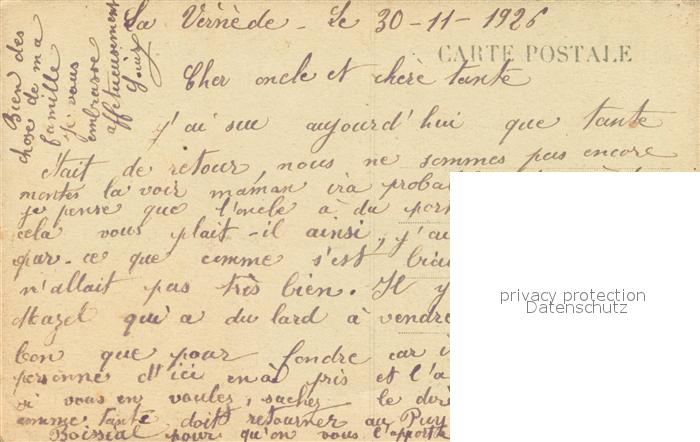 La Vernède - Le 30-11-1926
CARTE POSTALE
Cher oncle et chère tante
j'ai su aujourd'hui que tante
était de retour, nous ne sommes pas encore
montés la voir maman ira
je pense que l'oncle a du
cela vous plait-il ainsi, j'
par-ce que comme s'est
n'allait pas très bien. Il y
Mazel qui a du lard à vendre
bon que pour fondre car
personne d'ici en a pris et l'a
si vous en voulez, sachez le
comme tante doit retourner au Puy
Boissial pour qu'on vous l'apporte
Bien des
chose de ma
famille
Je vous
embrasse
affectueusement
privacy protection
Datenschutz